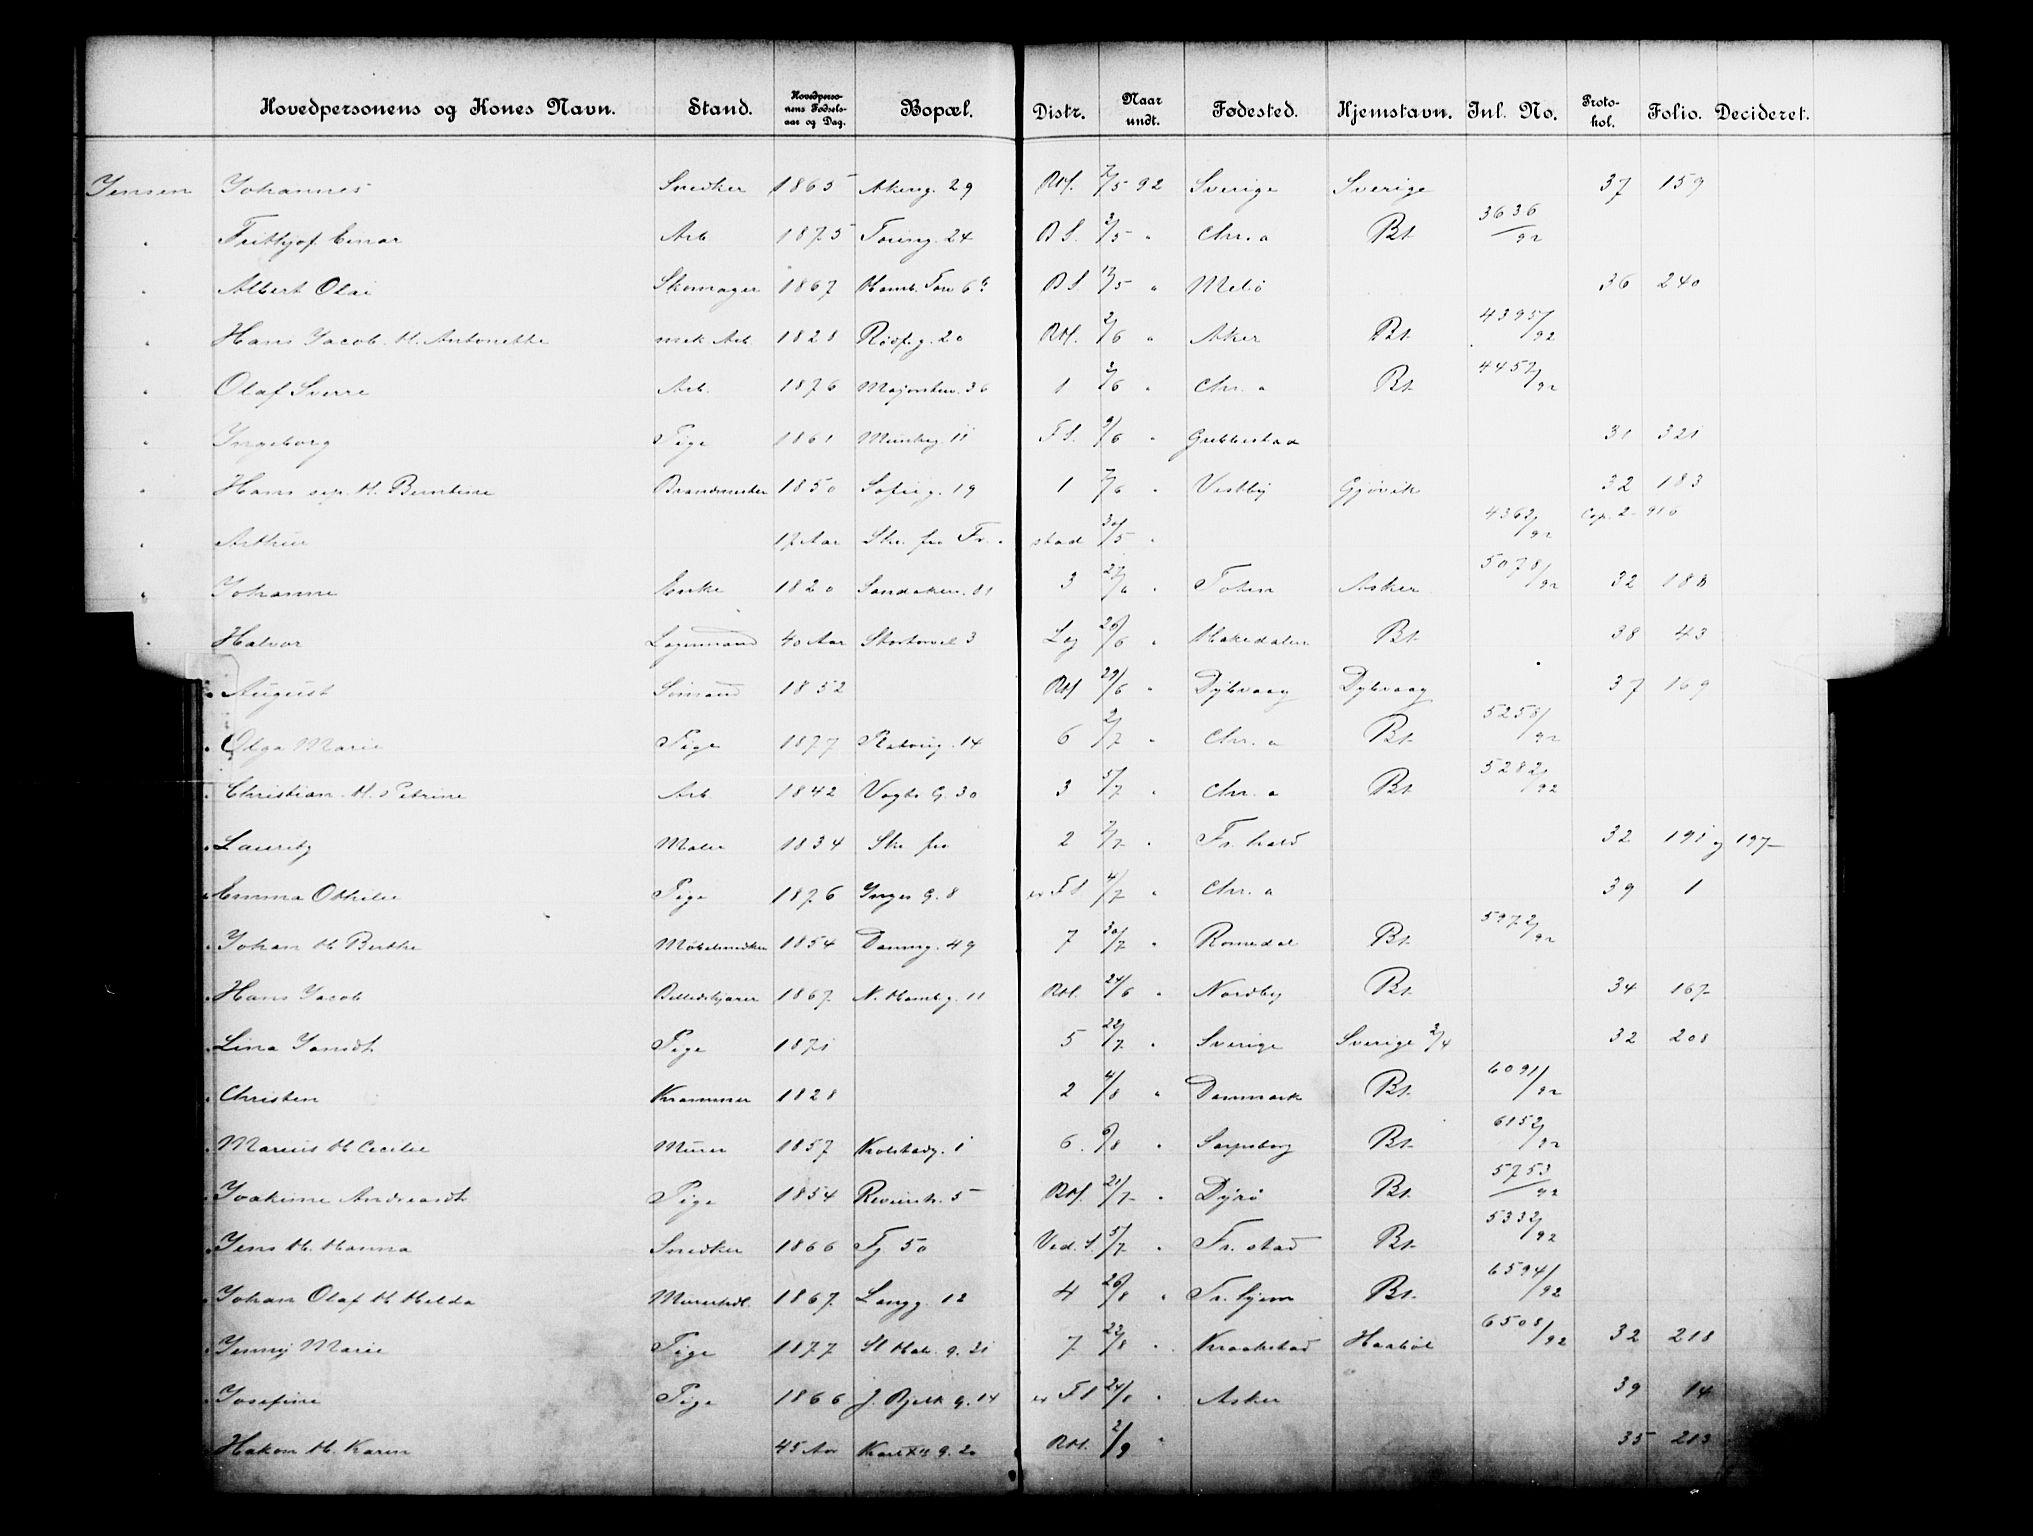 Hovedpersonens og Kones Navn. Stand. Hovedpersonens Fødselsaar og Dag. Bopæl. Distr. Naar undt. Fødested. Hjemstavn. Inl. No. Protokol. Folio. Decideret.
Jensen Johannes Snedker 1865 Akersg. 29 RM. 2/5 92 Sverige Sverige 37 159
" Frithjof Einar Arb 1875 24 3/5 " Chr.a Bt. 3636/92
" Albert Olai Skomager 1867 Hamb. 12/5 " Melø 36 240
" Hans Jacob. M. Antonette mek Arb. 1828 20 RM. 2/6 " Aker Bt. 4395/92
" Olaf Sverre Arb. 1876 Majorstuv. 36 1 2/6 " Chr. a Bt. 4457/92
" Ingeborg Pige 1861 Munkeg. 11 9/6 " Grebbestad 31 321
" Hans M. Berntine Brandmester 1850 Sofieg. 19 1 7/6 " Vestby Gjøvik 32 183
" Arthur 17 Aar Skr. fra Fr. stad 30/5 " 4362/92
" Johanne Enke 1820 Sandakerv. 81 3 27/6 " Toten Asker 5078/92 32 188
" Halvor 40 Aar Stortorvet 3 28/6 " Hakedalen Bt. 38 43
" August Sømand 1852 RM 29/6 " Dybvaag Dybvaag 37 169
" Olga Marie Pige 1877 14 6 2/7 " Chr. a Bt. 5258/92
" Christian. M. Petrine Arb 1842 Vogts G. 30 3 5/7 " Chr. a Bt. 5282/92
" Lauritz Maler 1834 Skr. fra 2 7/7 " Fr. hald 32 191 og 197
" Emma Othilie Pige 1876 Inges G. 8 4/7 " Chr. a 39 1
" Johan M Berthe Møbelsnedker 1854 49 7 30/7 " Romedal Bt. 5972/92
" Hans Jacob Billedskjærer 1867 11 RM. 24/6 " Nordby Bt. 34 167
" Lina Jansdt. Pige 1871 5 22/7 " Sverige Sverige 2/4 32 208
" Christen 1828 2 4/8 " Danmark Bt. 6091/92
" Marius M Cecilie Murer 1857 Kolstadg. 1 6. 6/8 " Sarpsborg Bt. 6152/92
" Joakime Andreasdt. Pige 1854 Revierst. 5 RM. 21/7 " Dyrø Bt. 5753/92
" Jens M. Hanna Snedker 1866 50 5/7 " Fr. stad Bt. 5332/92
" Johan Olaf M Hilda 1867 Langg. 12 4 26/8 " Tr. hjem Bt. 6594/92
" Jenny Marie Pige 1877 St Hal. g. 21 7 22/8 " Kraakstad Hasløl 6508/92 32 218
" Josefine Pige 1866 J. Bjelk G. 14 24/8 " Asker 39 14
" Hakon M. Karin 45 Aar g. 20 RM. 2/9 " 35 213